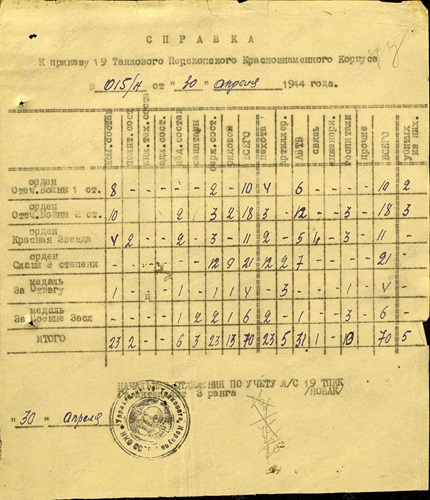 СПРАВКА
К приказу 19 Танкового Перекопского Краснознаменного Корпуса
№ 015/н от "30" апреля 1944 года.
ком.состава полит.сост инж.тех.сост мед.состав серж.сост. рядовой ВСЕГО пехота артиллер. АБТВ связь инженерн. госпитали прочие ВСЕГО убитых из них.
орден
Отеч.Войны 1 ст. 8 - - - - - 2 - 10 4 - 6 - - - - 10 2
орден
Отеч.Войны 2 ст. 10 - - - 2 1 3 2 18 3 - 12 - - 3 - 18 3
орден
Красная Звезда 4 2 - - 2 - 3 - 11 2 - 5 1 - 3 - 11 -
орден
Славы 3 степени - - - - - - 12 9 21 12 2 7 - - - - 21 -
медаль
За Отвагу 1 - - - 1 - 1 1 4 - 3 - - - 1 - 4 -
медаль
За Боевые Засл - - - - 1 2 2 1 6 2 - 1 - - 3 - 6 -
ИТОГО 23 2 - - 6 3 23 13 70 23 5 31 1 - 10 - 70 5
НАЧАЛЬНИК ОТДЕЛЕНИЯ ПО УЧЕТУ Л/С 19 ТПКК
3 ранга /НОВАК/
"30" апреля